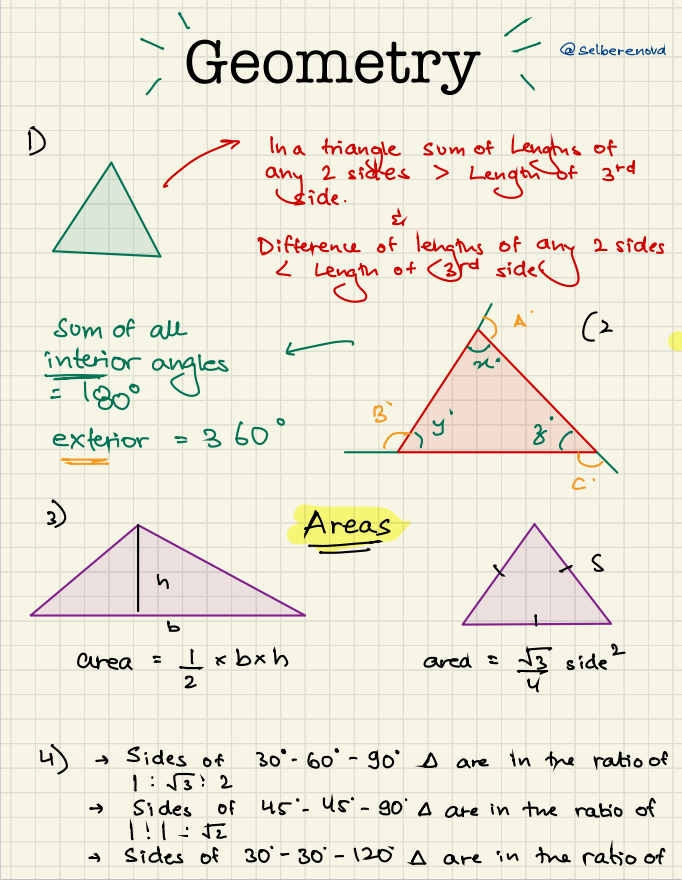 Geometry
@selberenova
1)
In a triangle sum of Lengths of
any 2 sides > Length of 3rd
side.
&
Difference of lengths of any 2 sides
< Length of 3rd side
Sum of all
interior angles
= 180°
exterior = 360°
(2
A°
x°
B°
y°
z°
C°
3)
Areas
h
b
area = 1/2 × b × h
S
area = √3/4 side²
4) → Sides of 30°- 60° - 90° Δ are in the ratio of
1 : √3 : 2
→ Sides of 45°- 45° - 90° Δ are in the ratio of
1 : 1 : √2
→ Sides of 30° - 30° - 120° Δ are in the ratio of